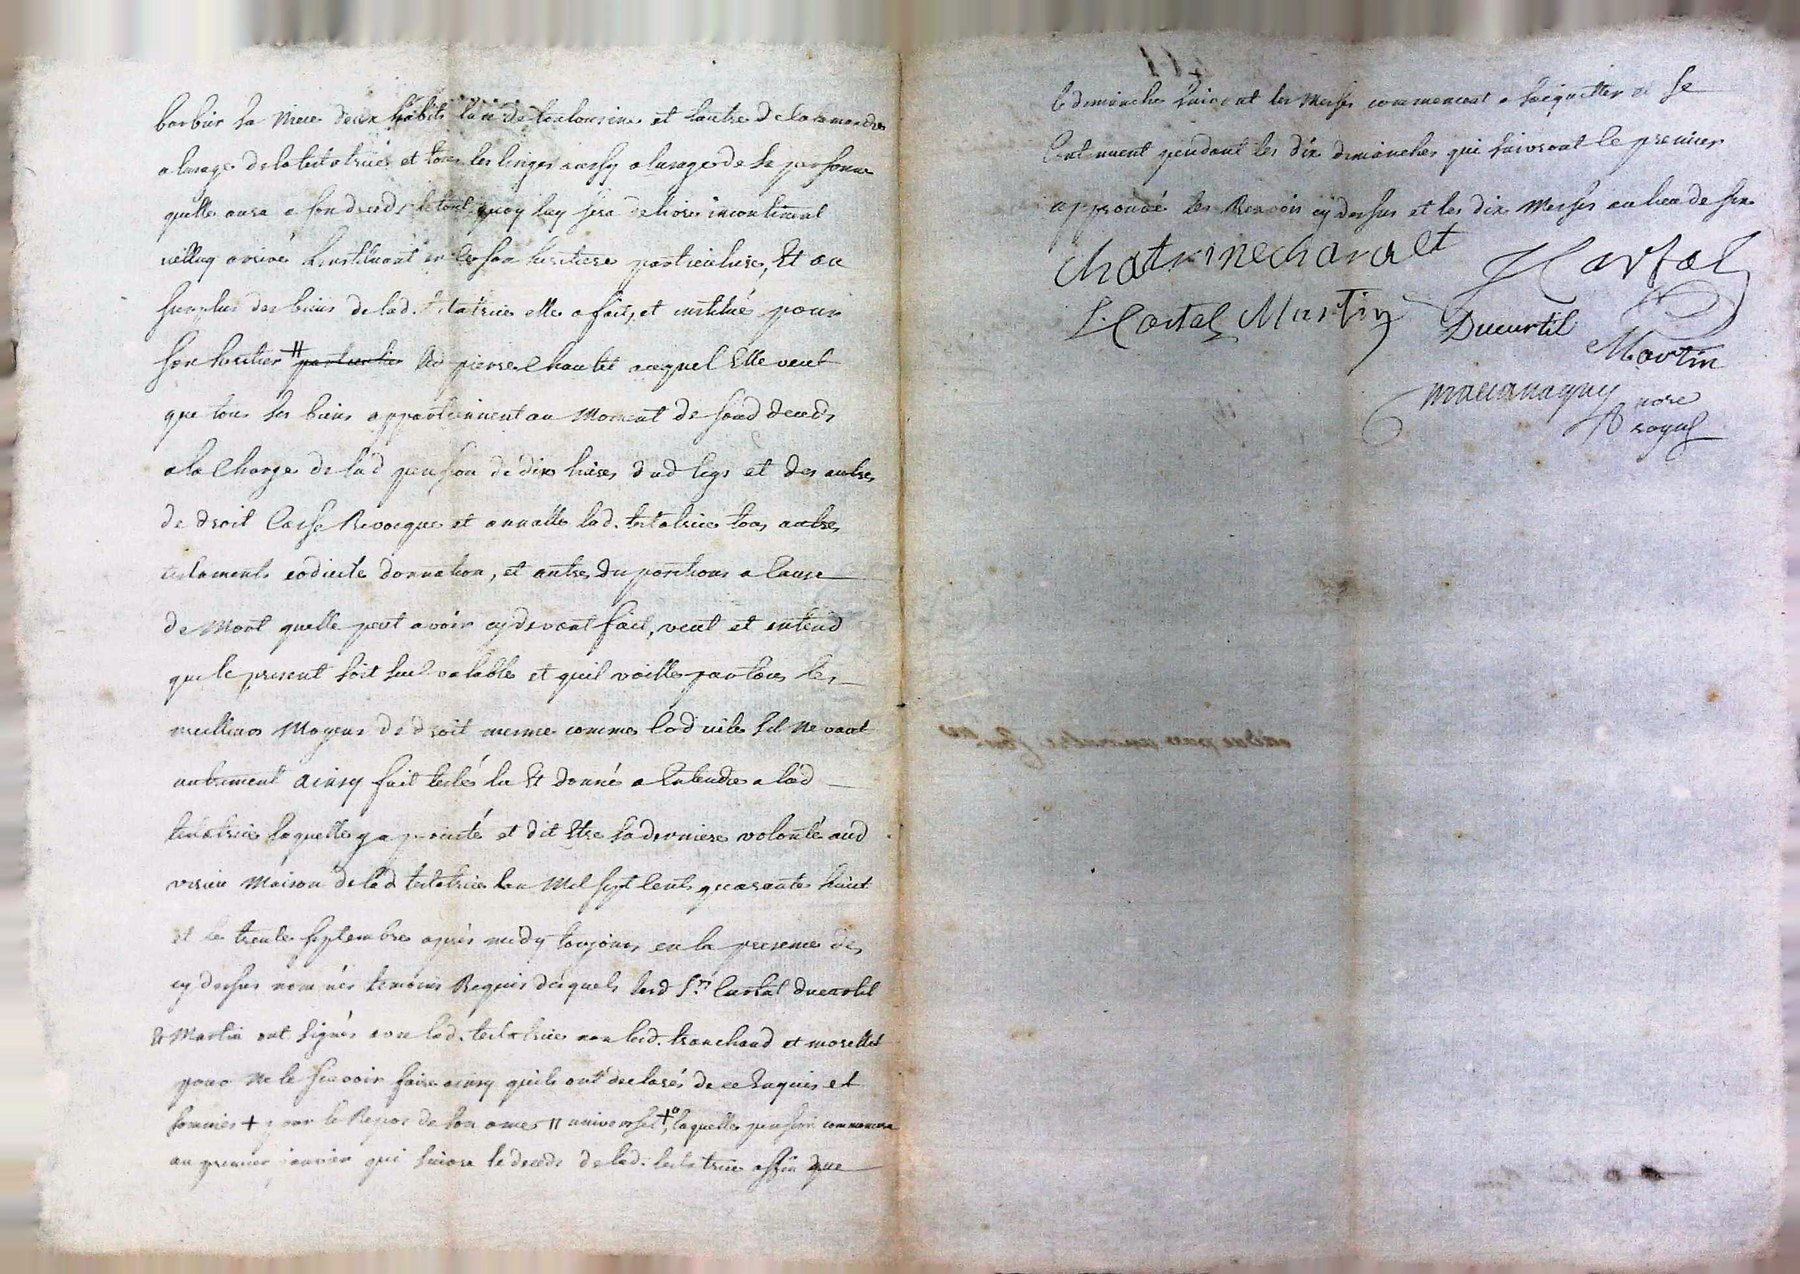 barbier sa niece deux habits l'un de toulousine et lautre de calamandre
a lusage de la testatrice et tous les linges aussy a lusage de sa personne
quelle aura a son deceds le tout quoy luy sera delivré incontinant
icelluy arrivé linstituant en ce son heritiere particuliere, Et au
surplus des biens de lad. testatrice elle a fait, et institué pour
son heritier // particulier led pierre Chautet auquel Elle veut
que tous ses biens appartiennent au Moment de sond deceds
a la Charge de lad pension de dix livres dud legs et des autres
de droit Casse Revocque et annulle lad. testatrice tous autres
testaments codicile donnation, et autres dispositions a Cause
de Mort quelle peut avoir cy devant fait, veut et entend
que le present soit seul valable et quil vaille par tous les
meilleurs Moyens de droit mesme comme Codicile sil ne vaut
autrement ainsy fait testé lu Et donné a Entendre a lad
testatrice laquelle y a persisté et dit Etre sa derniere volonté aud
virieu Maison de lad testatrice lan Mil sept Cents quarante huit
et le trente septembre après midy toujours en la presence des
cy dessus nommés temoins Requis desquels lesd Srs. Cartal ducurtil
Et Martin ont signés avec lad. testatrice non lesd. tranchand et morellet
pour ne le scavoir faire ainsy quils ont declarés de ce Enquis et
sommés + pour le Repos de son ame // universel +o, laquelle pension commencera
au premier janvier qui suivra le deceds de lad. testatrice affin que
le dimanche suivant les Messes commencent a sacquitter et se
Continuent pendant les dix dimanches qui suivront le premier
approuvé les Renvois cy dessus et les dix Messes au lieu de six
Chatrinechavalet JCartal
L. Cartal Martin Ducurtil
Martin
nore
royal